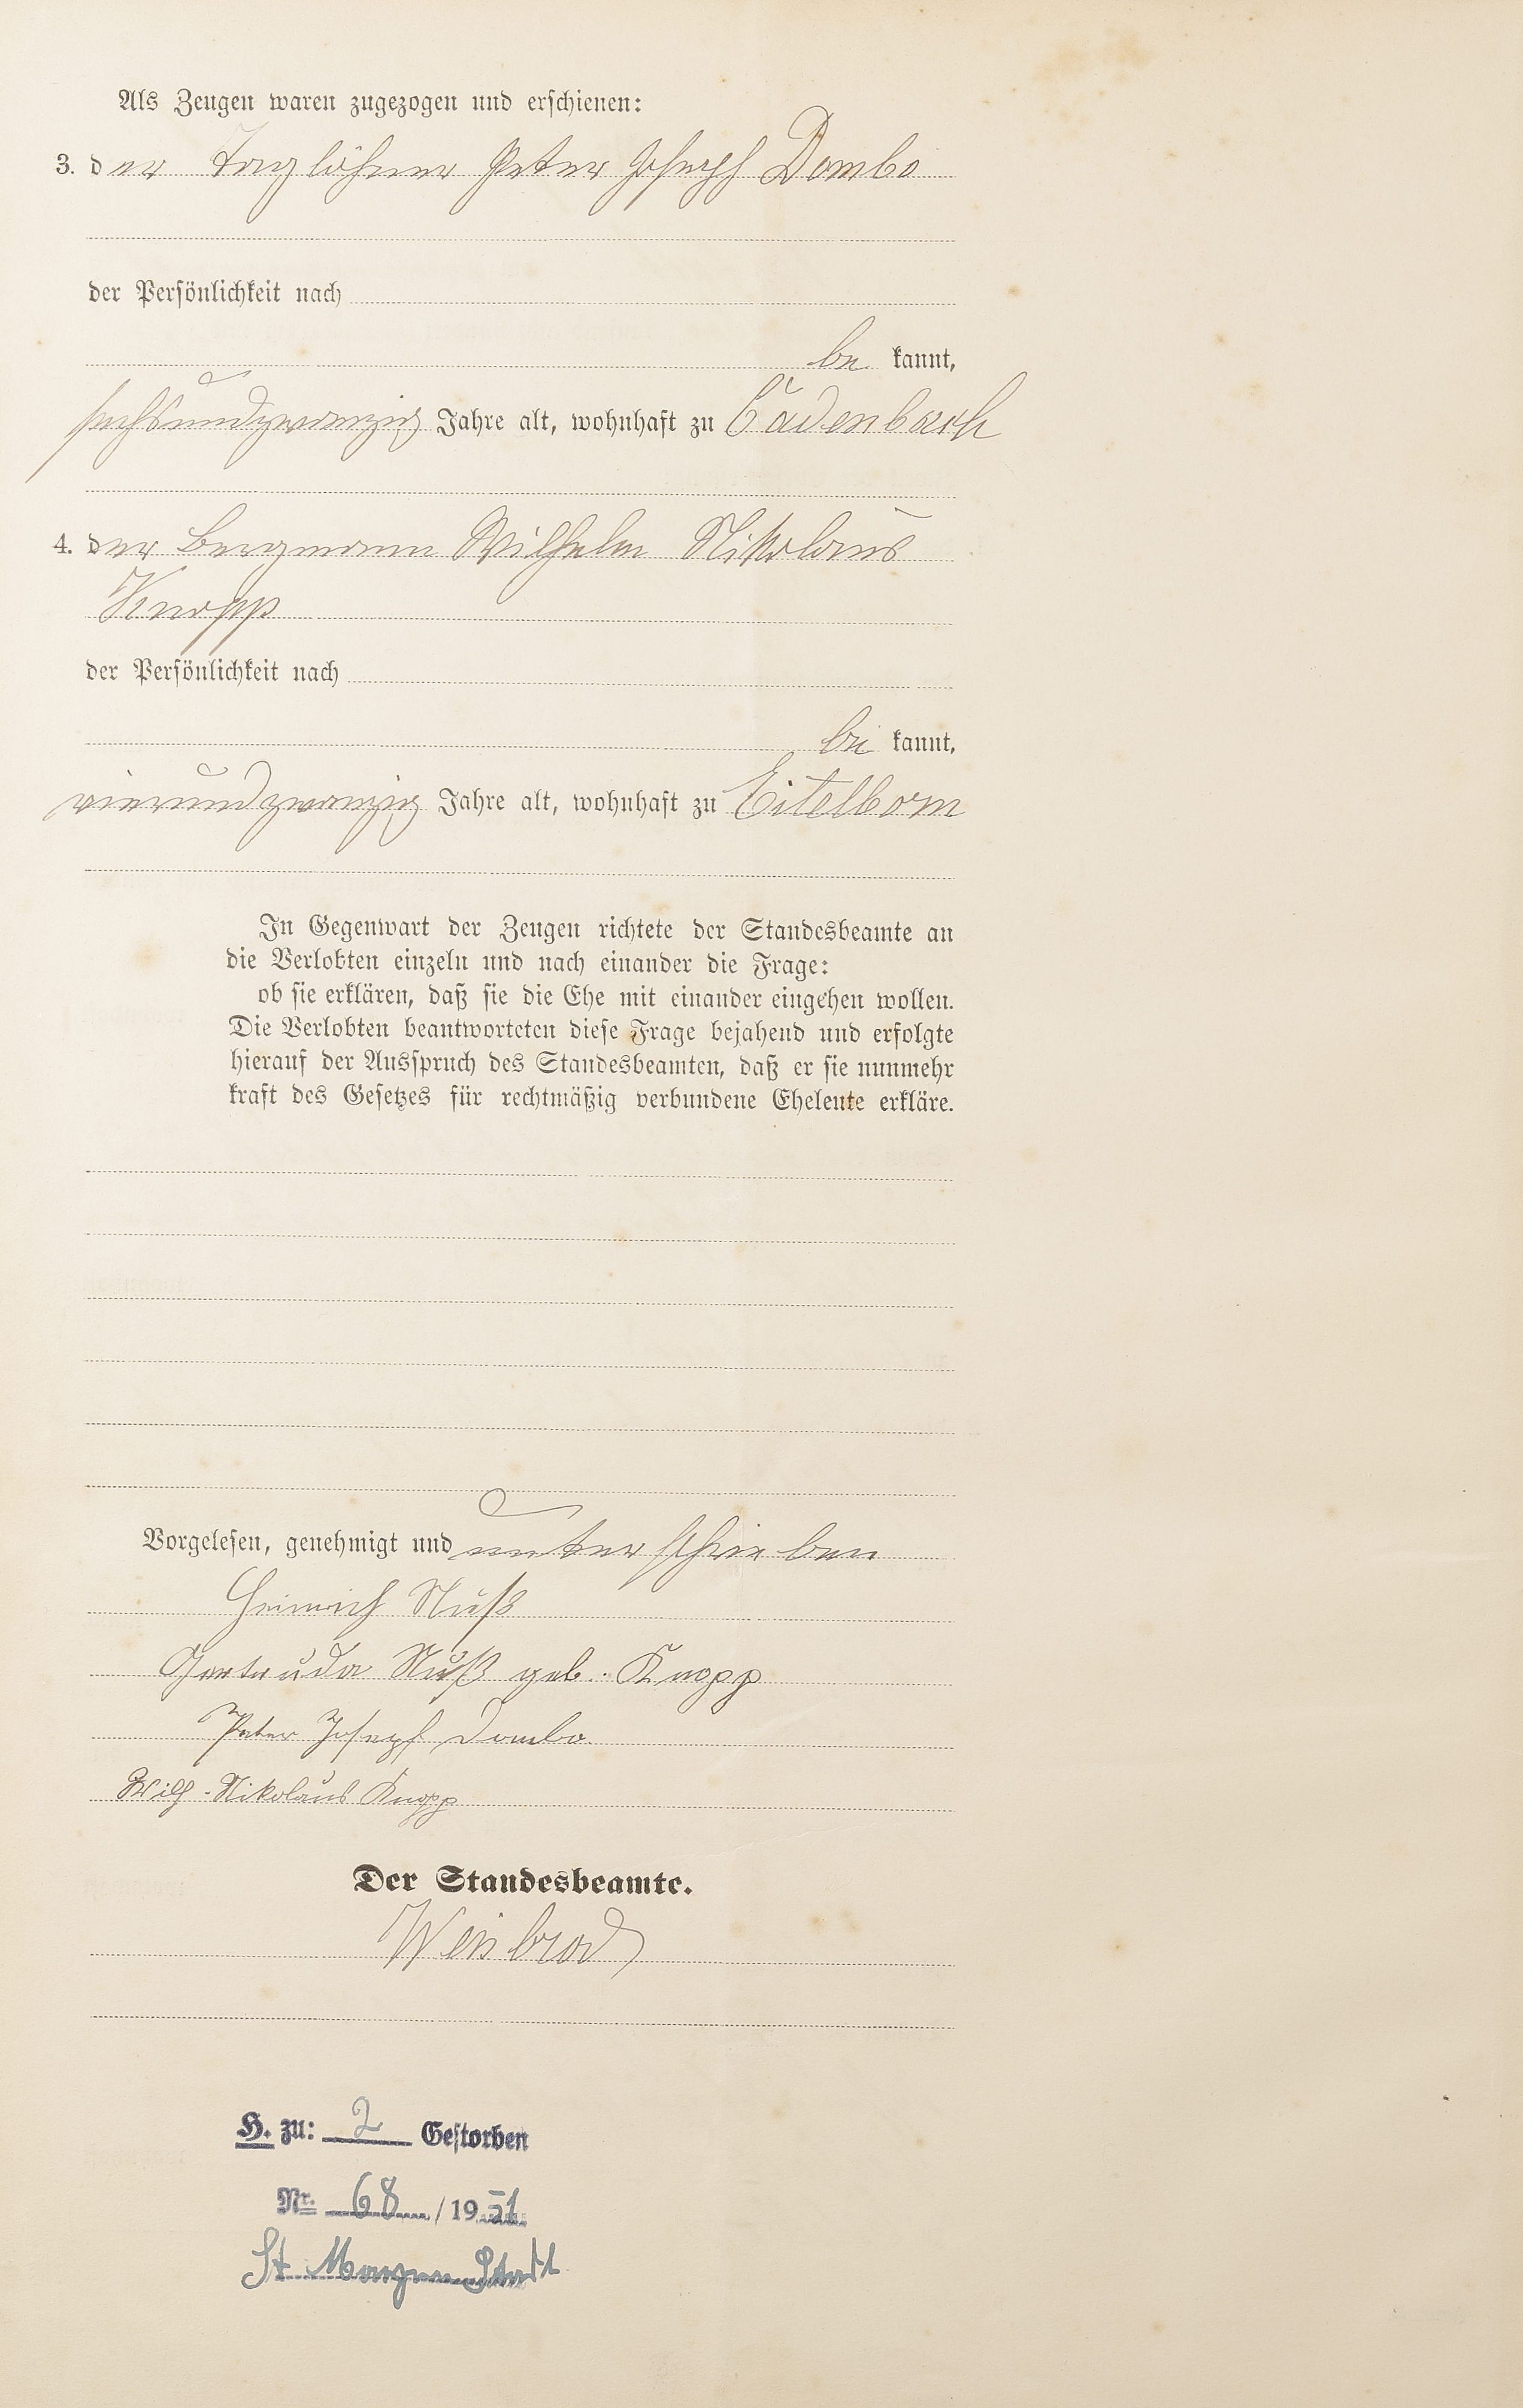 Als Zeugen waren zugezogen und erschienen:
3. der Taglöhner Peter Joseph Dombo
der Persönlichkeit nach
be kannt,
sechsundzwanzig Jahre alt, wohnhaft zu Cadenbach
4. der Bergmann Wilhelm Nikolaus
Knopp
der Persönlichkeit nach
be kannt,
vierundzwanzig Jahre alt, wohnhaft zu Eitelborn
In Gegenwart der Zeugen richtete der Standesbeamte an
die Verlobten einzeln und nach einander die Frage:
ob sie erklären, daß sie die Ehe mit einander eingehen wollen.
Die Verlobten beantworteten diese Frage bejahend und erfolgte
hierauf der Ausspruch des Standesbeamten, daß er sie nunmehr
kraft des Gesetzes für rechtmäßig verbundene Eheleute erkläre.
Vorgelesen, genehmigt und unterschrieben
Heinrich Nuß
Gertruda Nuß geb. Knopp
Peter Joseph Dombo
Wilh. Nikolaus Knopp
Der Standesbeamte.
Weisbrod
H. zu: 2 Gestorben
Nr. 68 / 1951
St